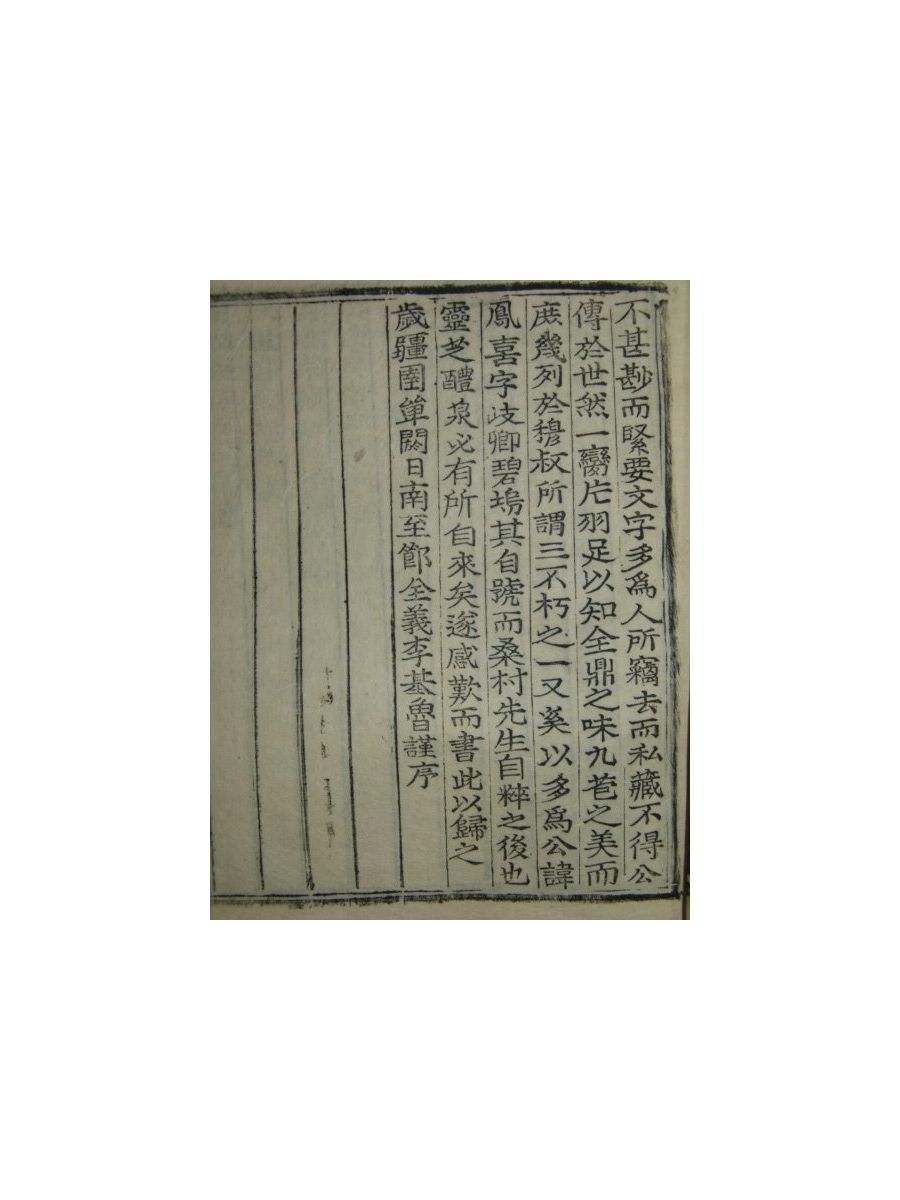 不甚尠而緊要文字多爲人所竊去而私藏不得公
傳於世然一臠片羽足以知全鼎之味九苞之美而
庶幾列於穆叔所謂三不朽之一又奚以多爲公諱
鳳喜字岐卿碧塢其自號而桑村先生自粹之後也
靈芝醴泉必有所自來矣遂感歎而書此以歸之
歲疆圉單閼日南至節全義李基魯謹序